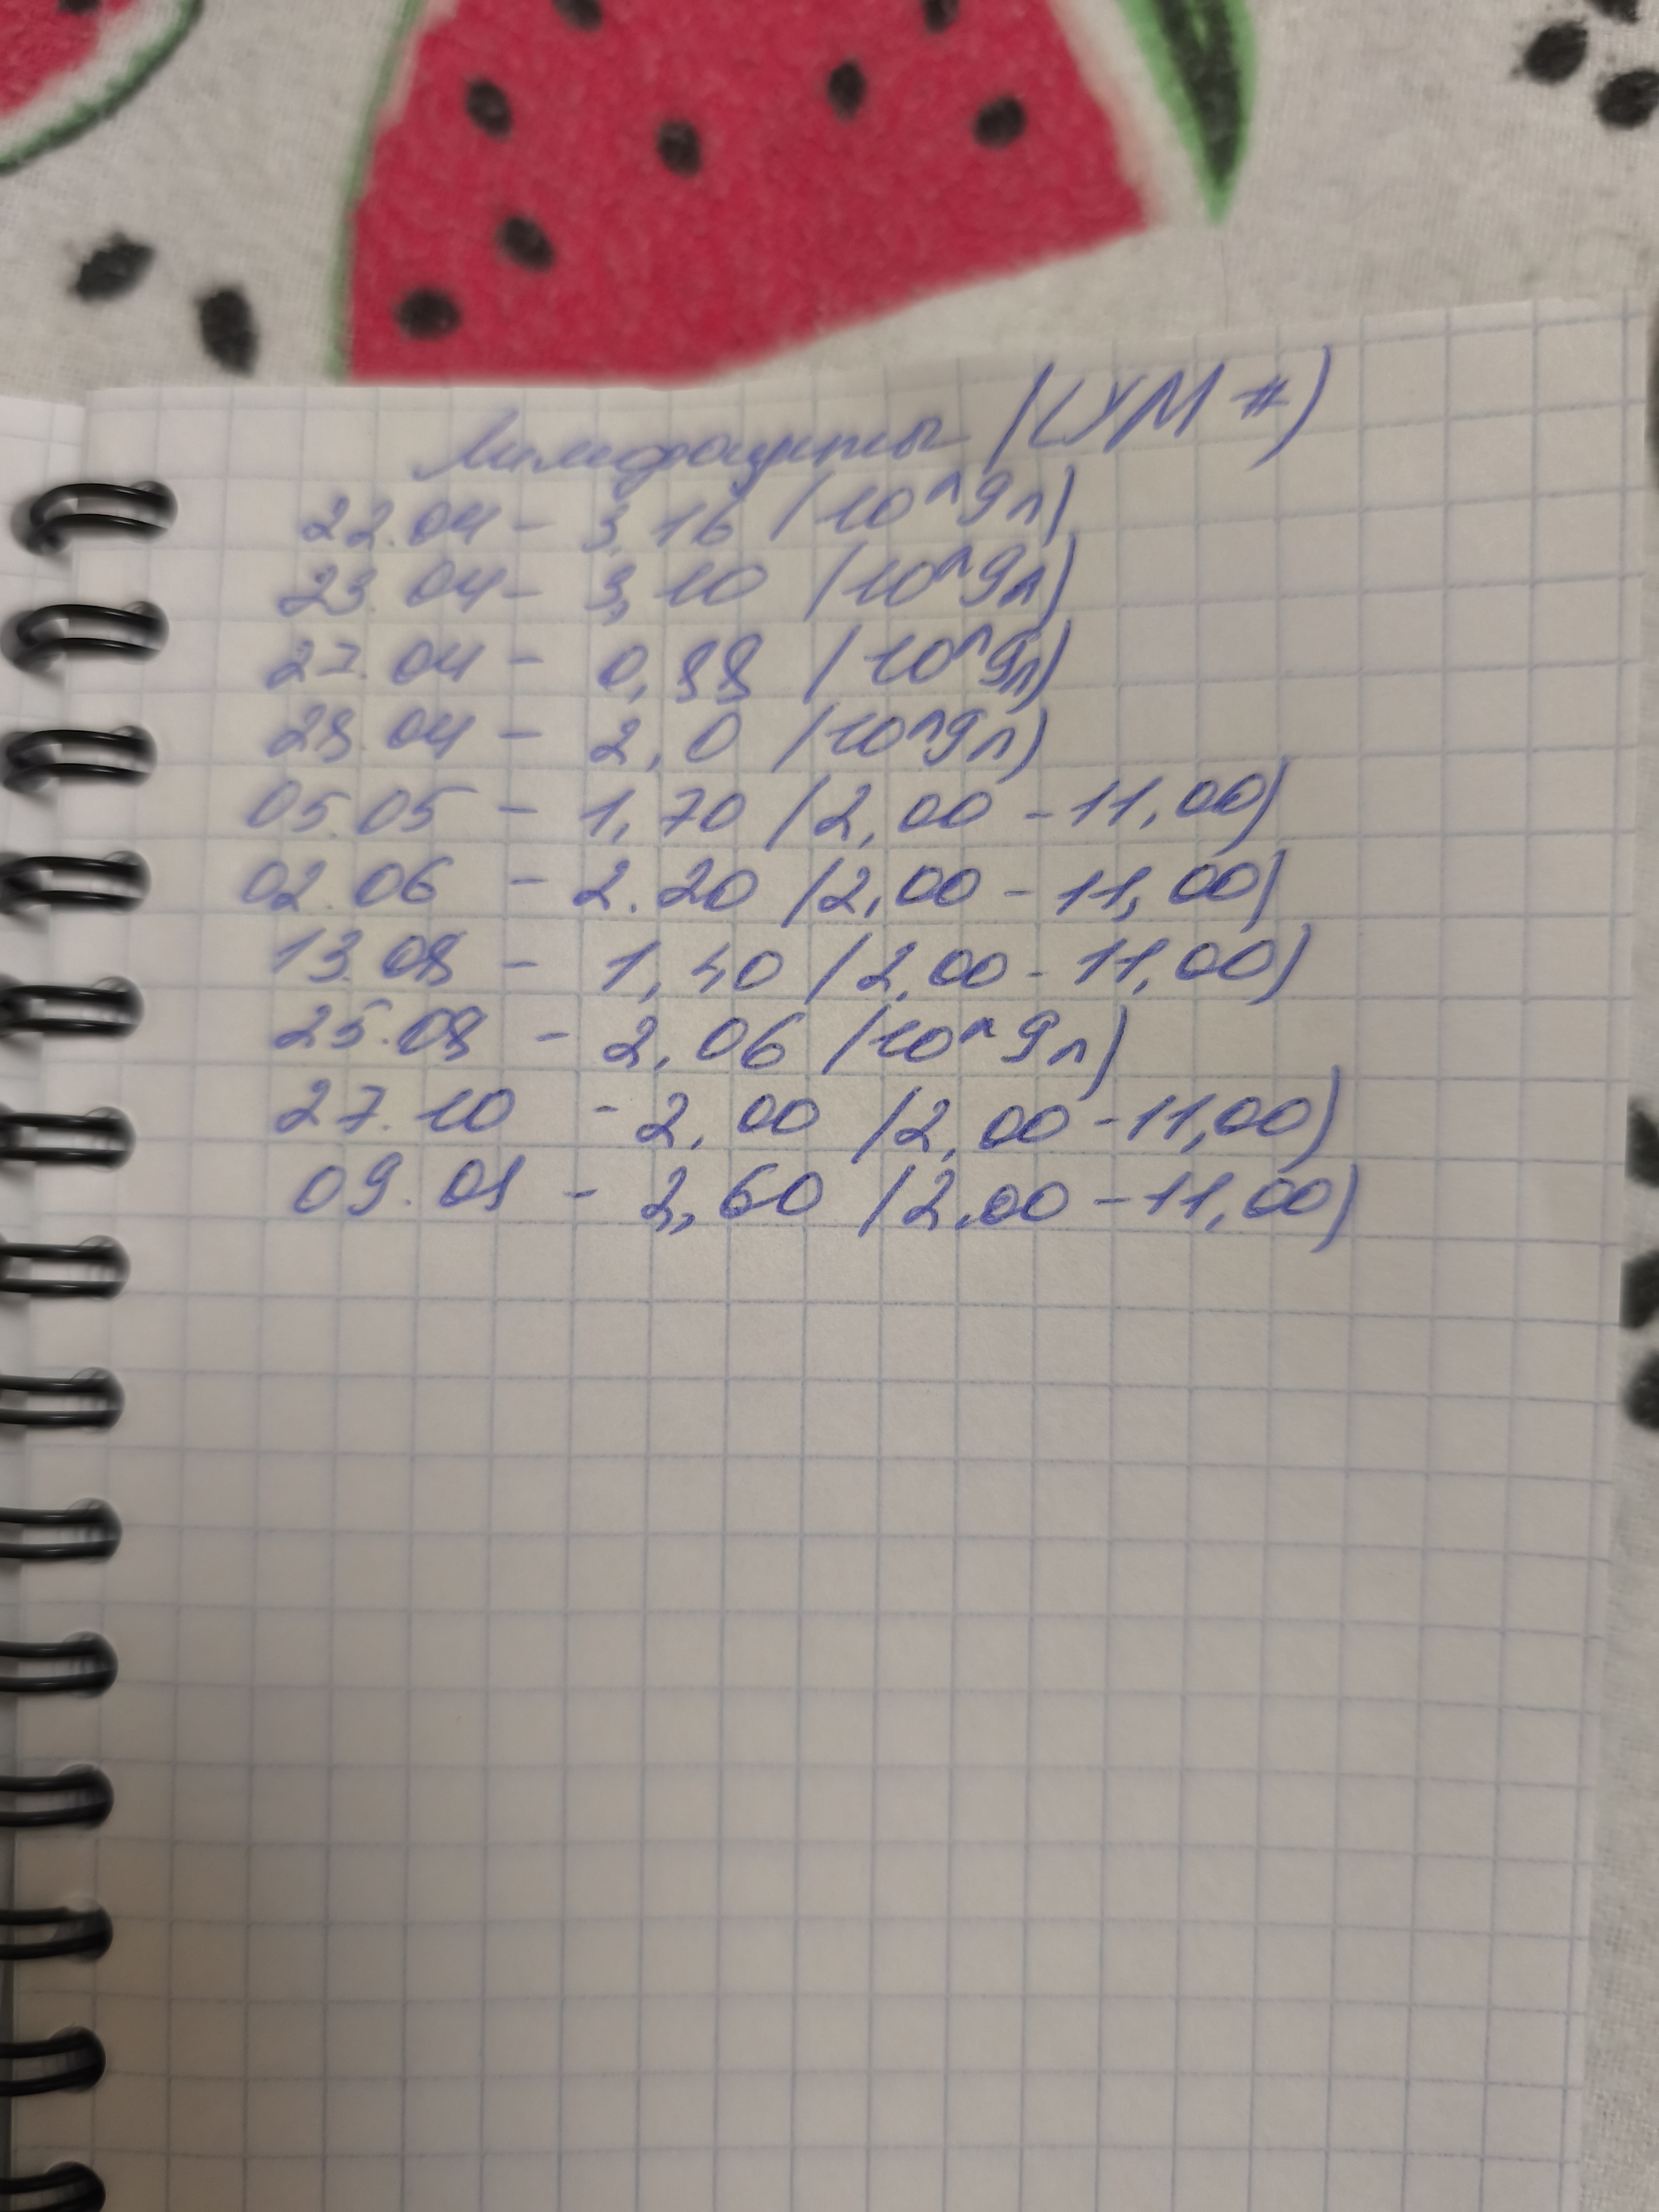 Лимфоциты (LYM #)
22.04 - 3,16 (10^9л)
23.04 - 3,10 (10^9л)
27.04 - 0,88 (10^9л)
28.04 - 2,0 (10^9л)
05.05 - 1,70 (2,00 - 11,00)
02.06 - 2.20 (2,00 - 11,00)
13.08 - 1,40 (2,00 - 11,00)
25.08 - 2,06 (10^9л)
27.10 - 2,00 (2,00 - 11,00)
09.01 - 2,60 (2,00 - 11,00)